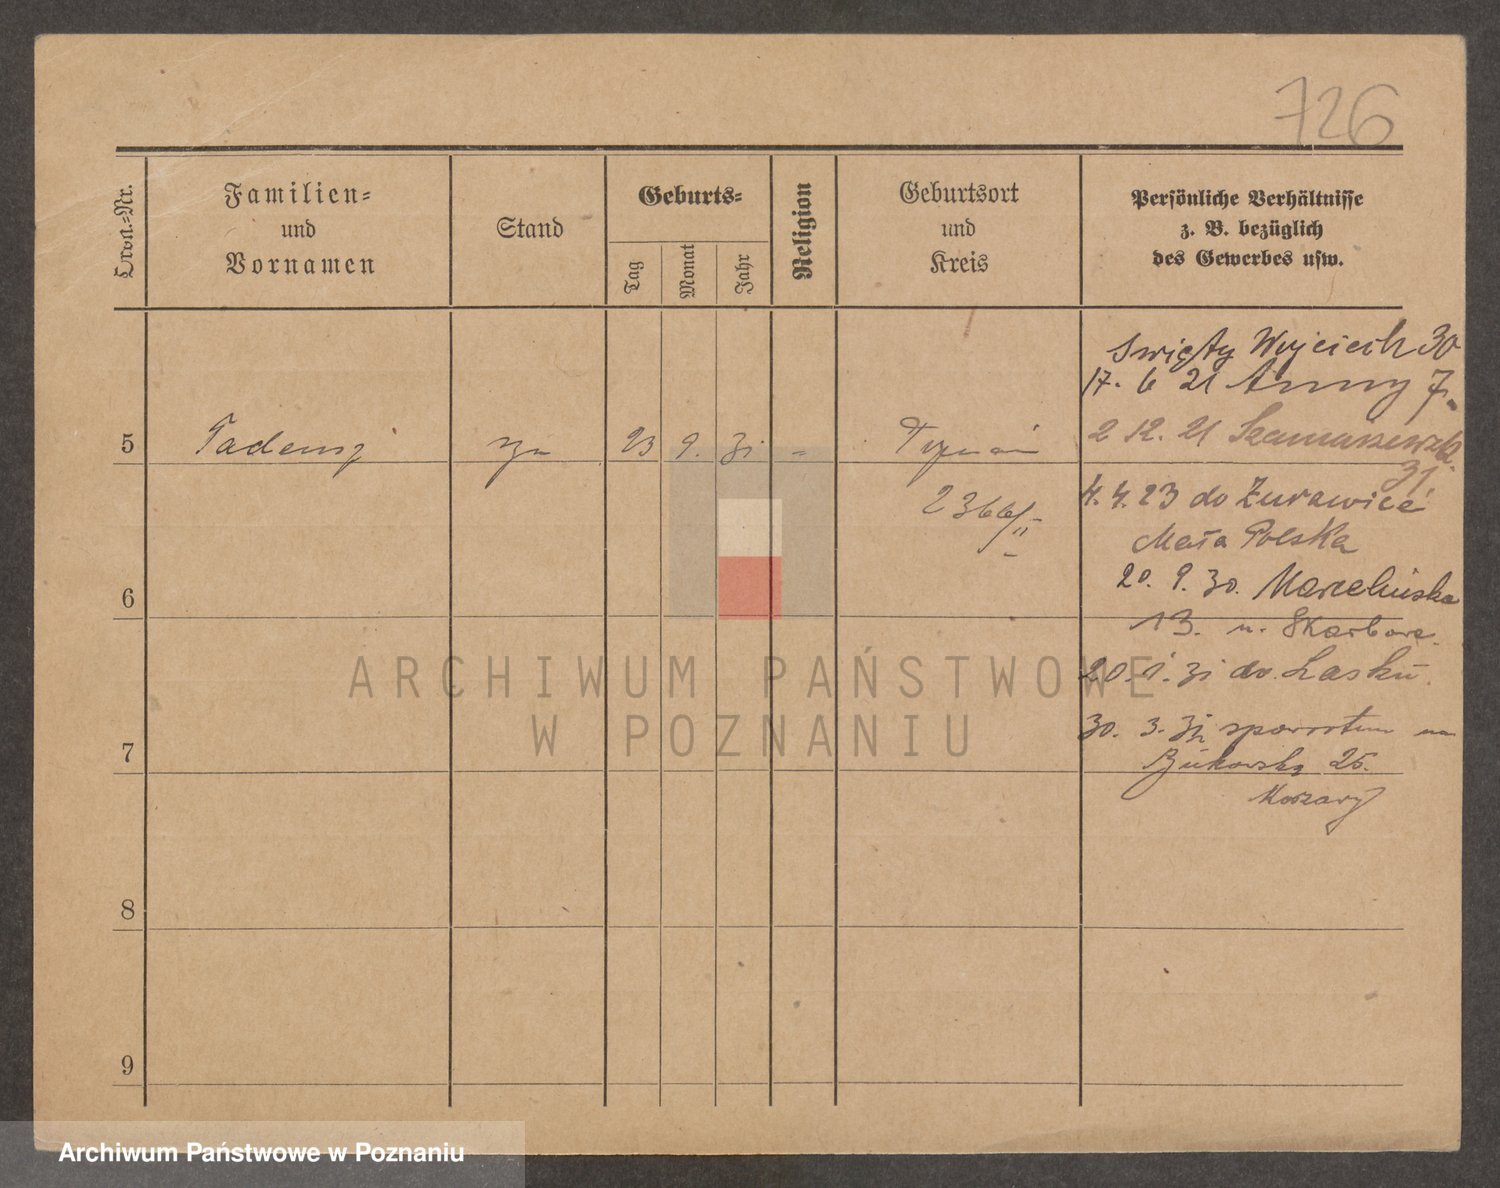 726
Ordn.-Nr.
Familien-
und
Vornamen
Stand
Geburts-
Tag
Monat
Jahr
Religion
Geburtsort
und
Kreis
Persönliche Verhältnisse
z. B. bezüglich
des Gewerbes usw.
Swięty Wojciech 30
17. 6 21 Anny 7.
2 12. 21
31
5 Tadeusz syn 23 9. 31 - Poznań
2366/II
4. 4. 23 do Żurawice
Mała Polska
6
20. 9. 30. Marcelińska
13. u. Skarbore.
20. 1. 31 do Lasku.
7
30. 3. 31 spowrotem na
Bukowską 25.
Koszary
8
9
ARCHIWUM PAŃSTWOWE
W POZNANIU
Archiwum Państwowe w Poznaniu